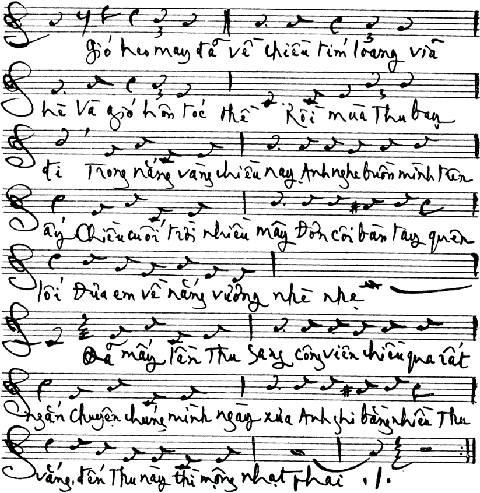 Gió heo may đã về chiều tím loang vỉa
hè Và gió hôn tóc thề Rồi mùa Thu bay
đi Trong nắng vàng chiều nay Anh nghe buồn mình trên
ấy Chiều cuối trời nhiều mây Đơn côi bàn tay quên
lối Đưa em về nắng vương nhè nhẹ
Đã mấy lần Thu sang công viên chiều qua rất
ngắn Chuyện chúng mình ngày xưa Anh ghi bằng nhiều Thu
vắng, đến Thu này thì mộng nhạt phai